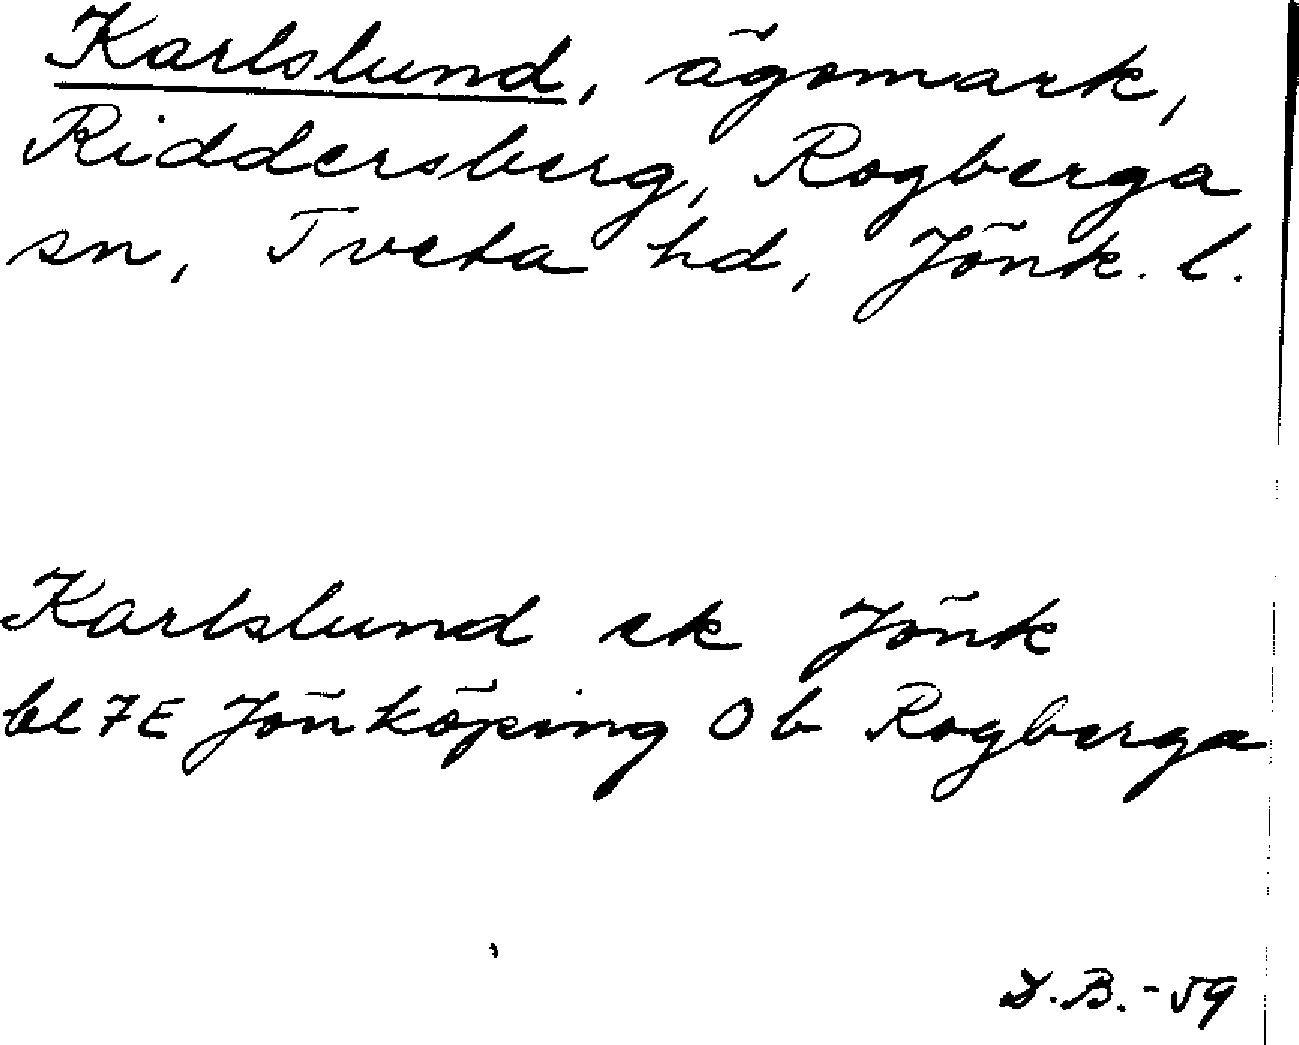 Karlslund, ägomark,
Riddersberg, Rogberga
sn, Tveta hd, Jönk. l.
Karlslund ek Jönk
bl 7E Jönköping Ob Rogberga
D.B.-59